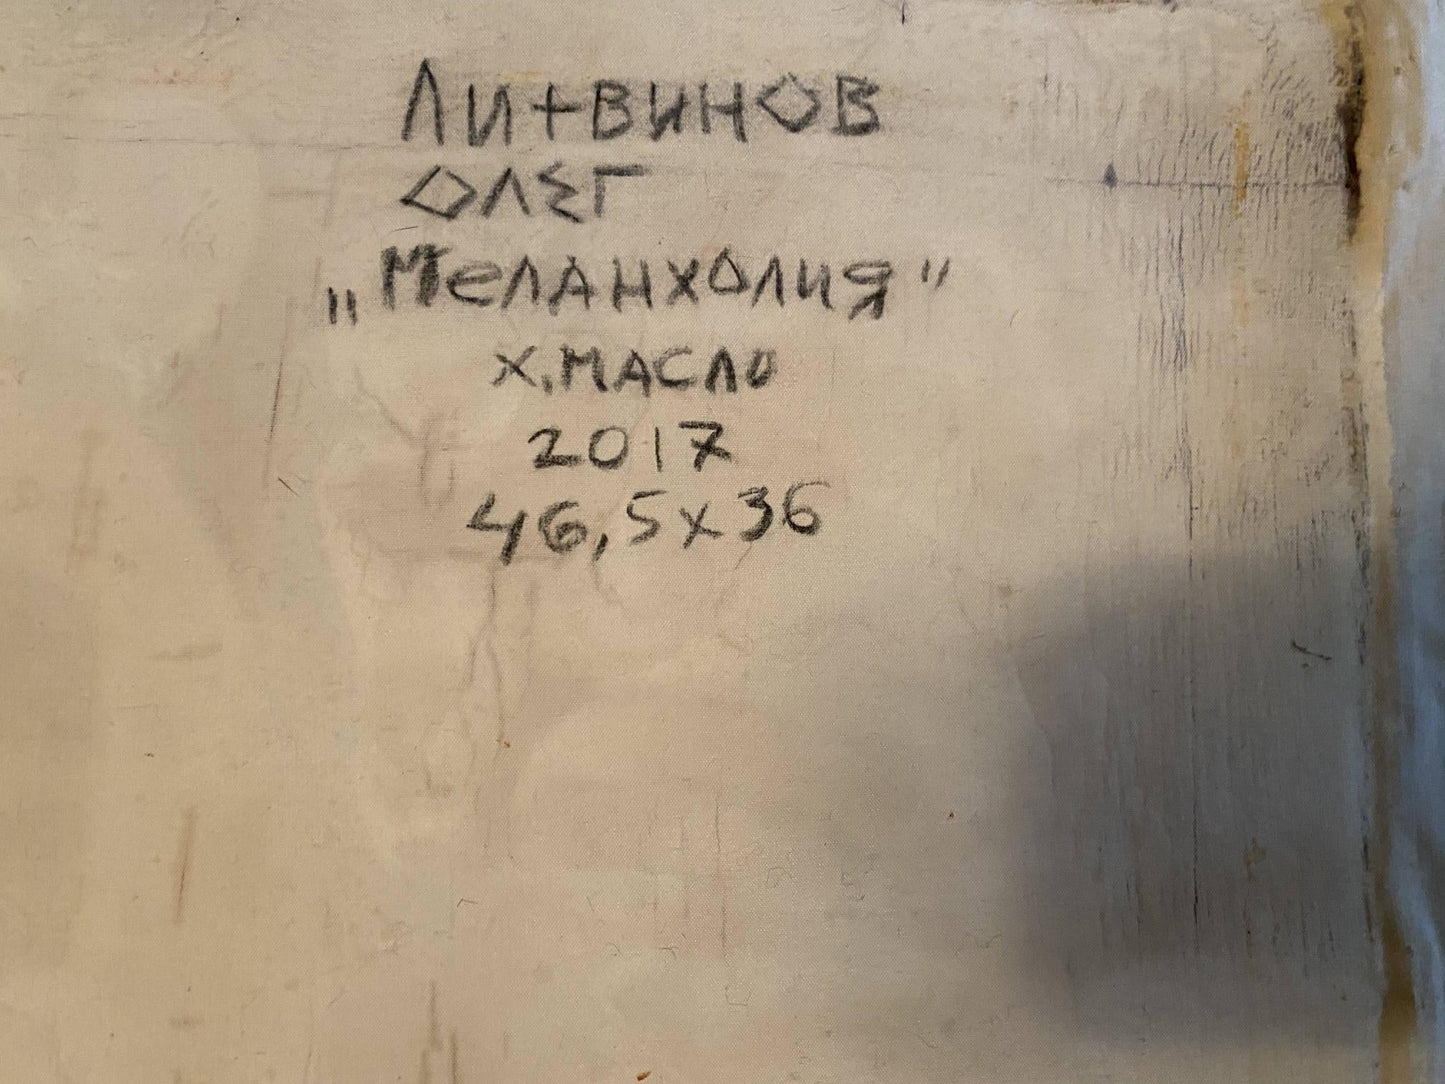 ЛИТВИНОВ
ОЛЕГ
"МеЛАНХОЛИЯ"
Х. МАСЛО
2017
46,5х36